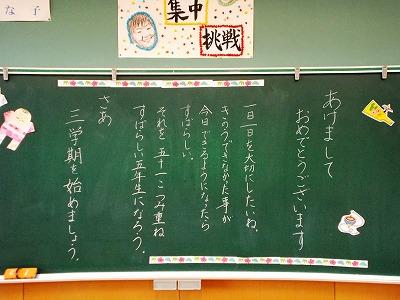 な子
集中
挑戦
あけまして
おめでとうございます
一日一日を大切にしたいね。
きのうできなかった事が
今日できるようになったら
すばらしい。
それを五十一こつみ重ね
すばらしい五年生になろう。
さあ
三学期を始めましょう。